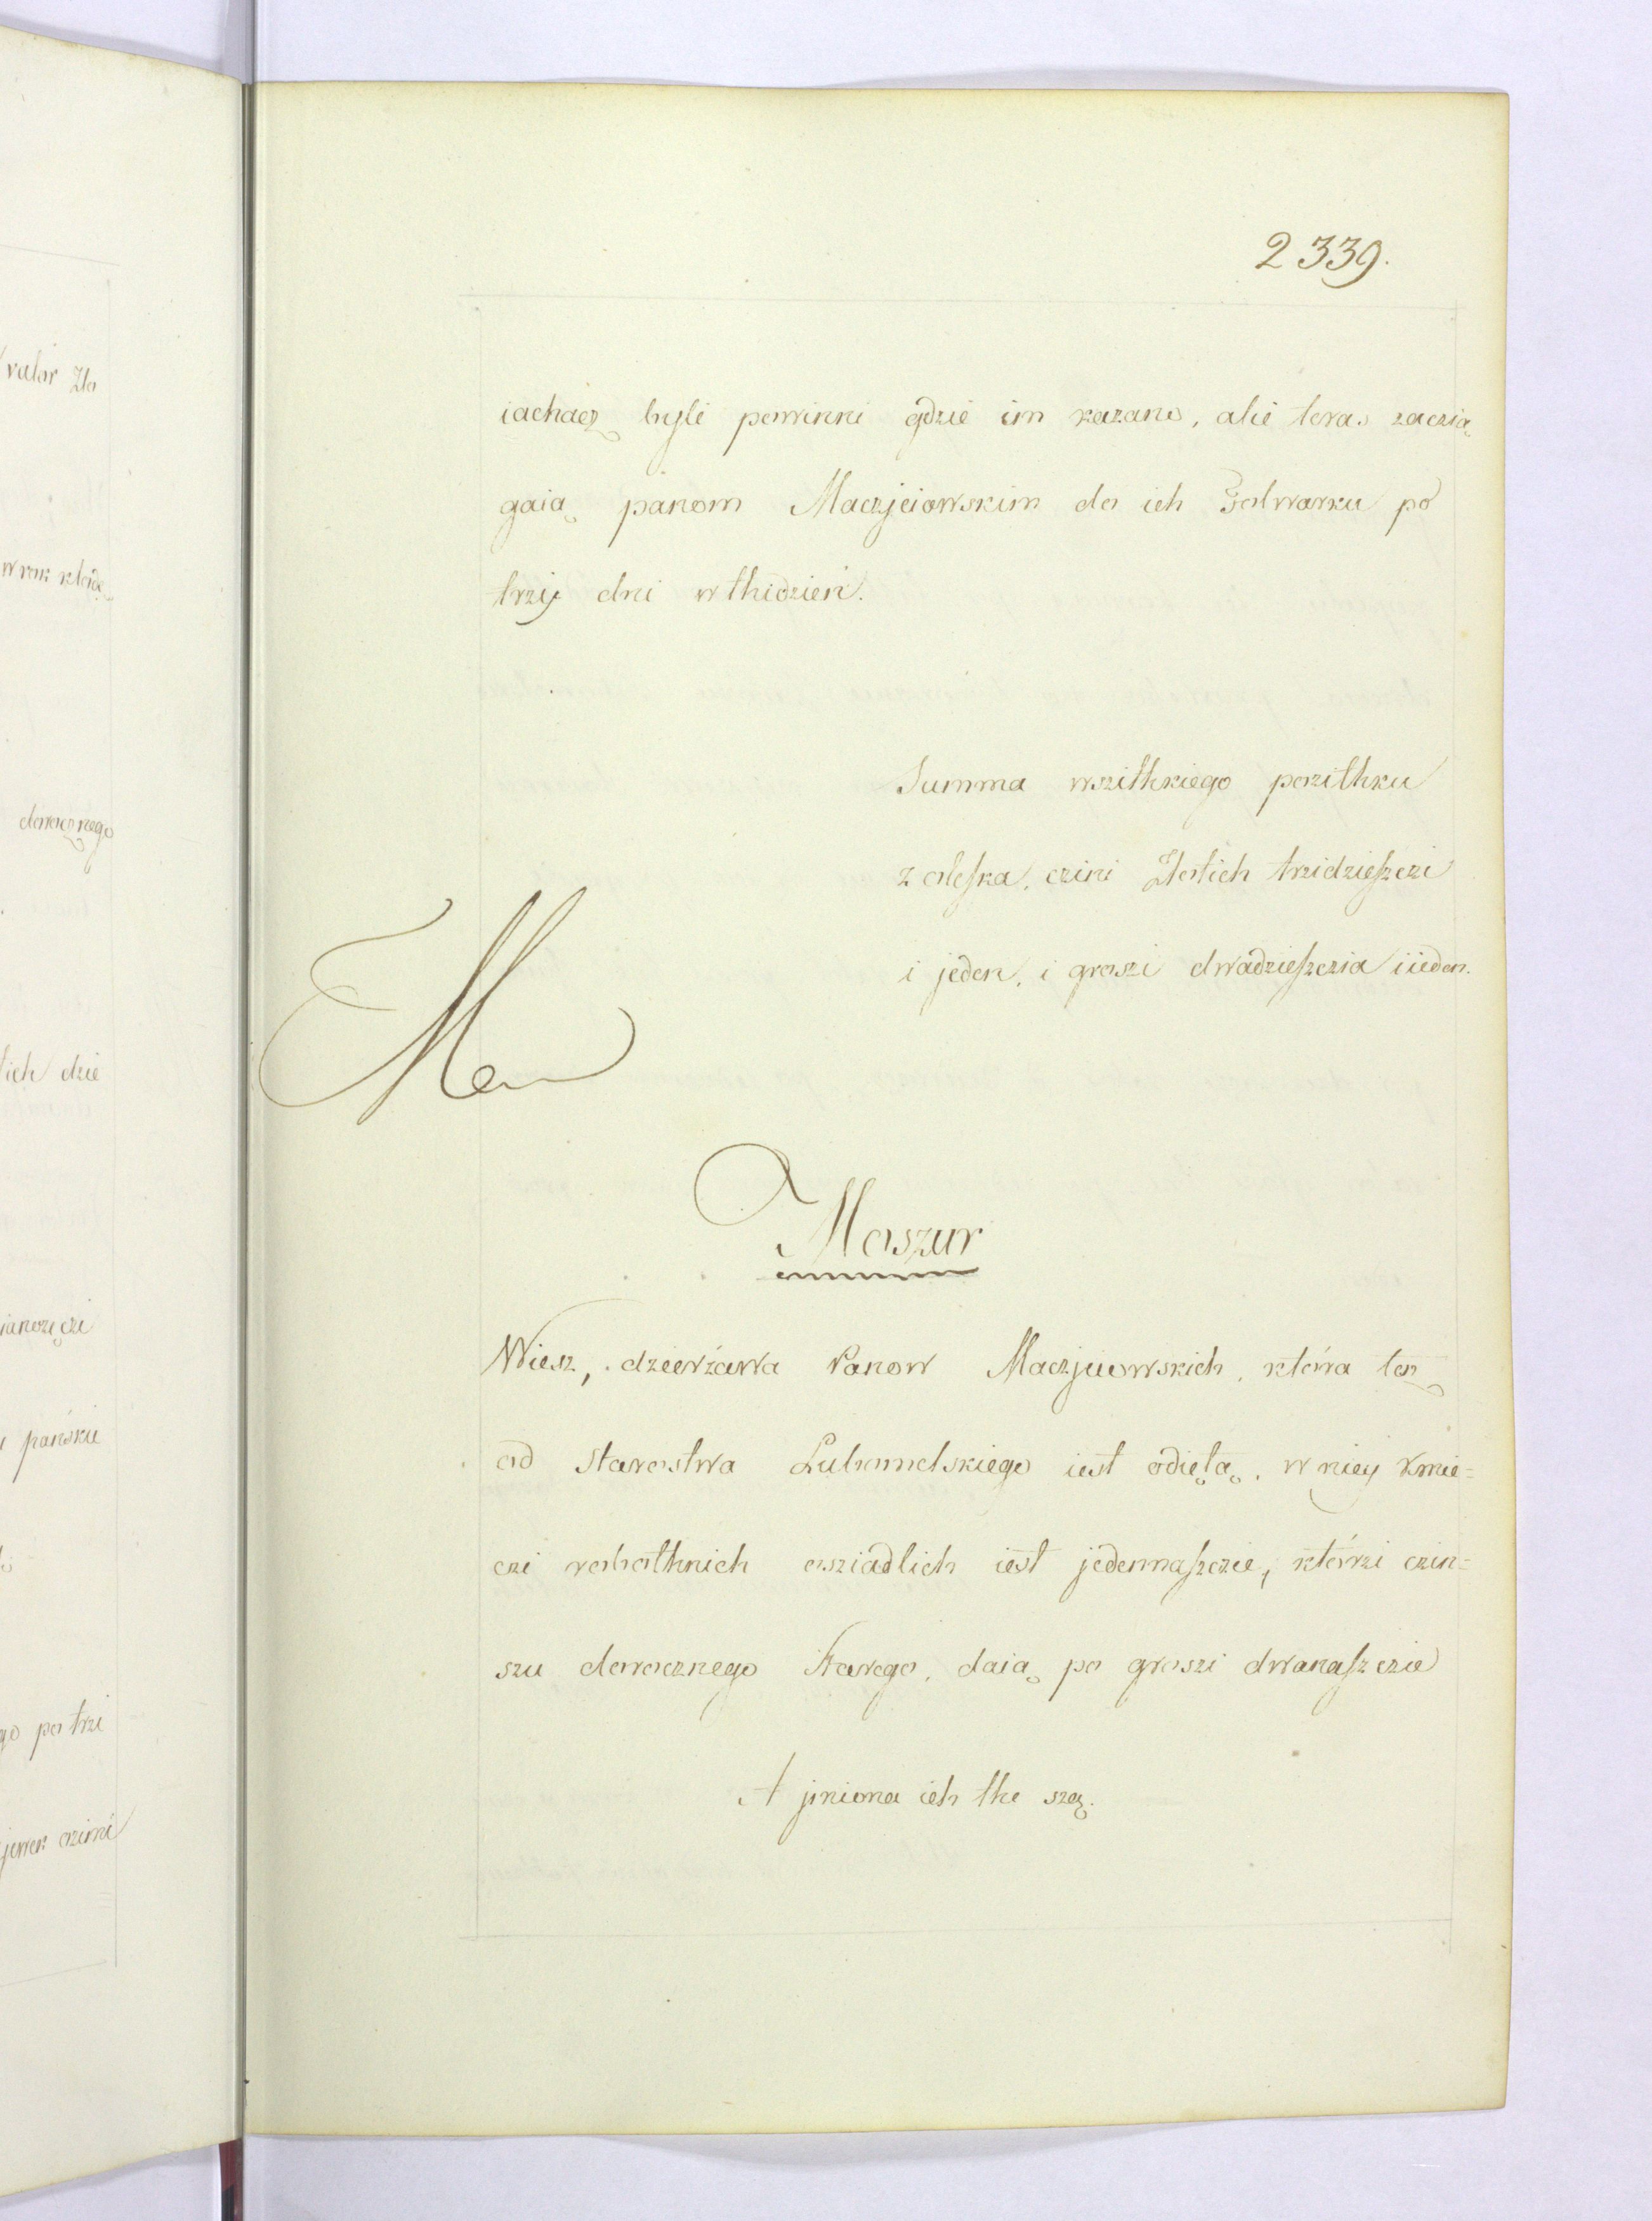 2339.
iachacz byli powinni gdzie im kazano, alie teraz zaczią
gaią panom Maczjeiowskim do ich Folwarku po
trzij dni w thidzień.
Summa wszithkiego pozithku
z oleska, czini Zlotich trzidzieszczi
i jeden, i groszi dwadzieszczia iieden.
Moszur
Wiesz, dzierżawa Panow Maczjeiowskich, która tesz
od Starostwa Lubomelskiego iest odięta, w niey Kmie=
czi robothnich osziadlich iest jedennaszczie, którzi czin=
szu dorocznego Starego, daią po groszi dwanaszczie
A jmiona ich the szą.
valor Zło
w rok kłodę
dorocznego
lich dzie
pańskie
go po trzi
czimi